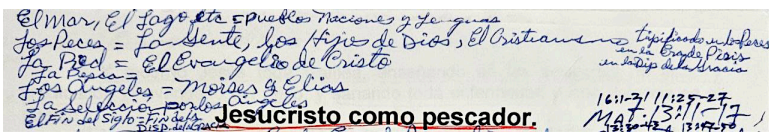 El mar, El Lago etc = pueblos Naciones y Lenguas
Los Peces = La Gente, los Hijos de Dios, El Cristianismo
tipificado en los Peces
en la Era de Picis
en la Disp de la Gracia
La Red = El Evangelio de Cristo
La Pesca =
Los Angeles = Moises y Elias
La Selección por los Angeles
El Fin del Siglo = Fin de la
DISP. de la Gracia
Jesucristo como pescador.
16:1-21 11:25-27
MAT. 13:11-17
13:30-43